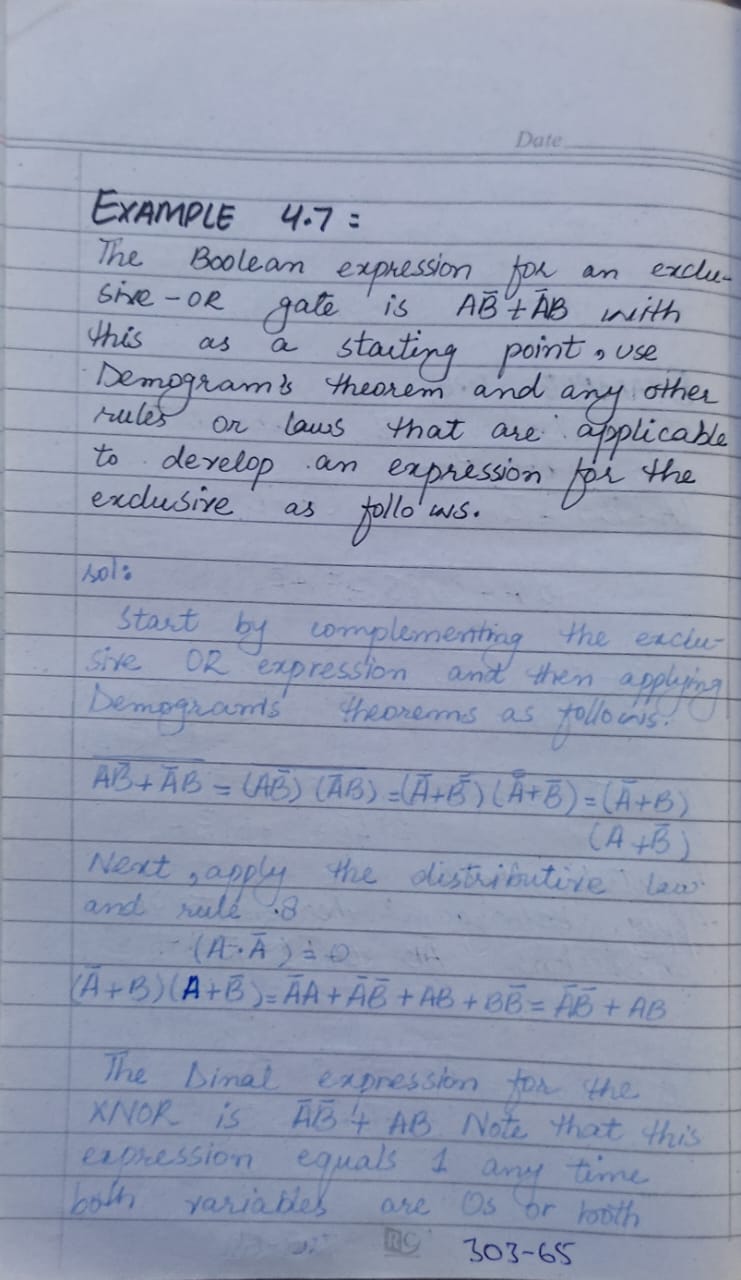 Date
EXAMPLE 4.7:
The Boolean expression for an exclu-
sive-OR gate is AB̅ + A̅B with
this as a starting point, use
Demogram's theorem and any other
rules or laws that are applicable
to develop an expression for the
exclusive as follows.
sol:
Start by complementing the exclu-
sive OR expression and then applying
Demogram's theorems as follows:
A̅B̅̅+̅A̅̅B̅ = (A̅B̅̅) (A̅̅B̅) = (A̅+B̅̅) (A̅̅+B̅) = (A̅+B)
(A+B̅)
Next, apply the distributive law
and rule .8
(A.A̅) = 0
(A̅+B)(A+B̅) = A̅A + A̅B̅ + AB + BB̅ = A̅B̅ + AB
The Dinal expression for the
XNOR is A̅B̅ + AB Note that this
expression equals 1 any time
both variables are 0s or both
RC
303-65